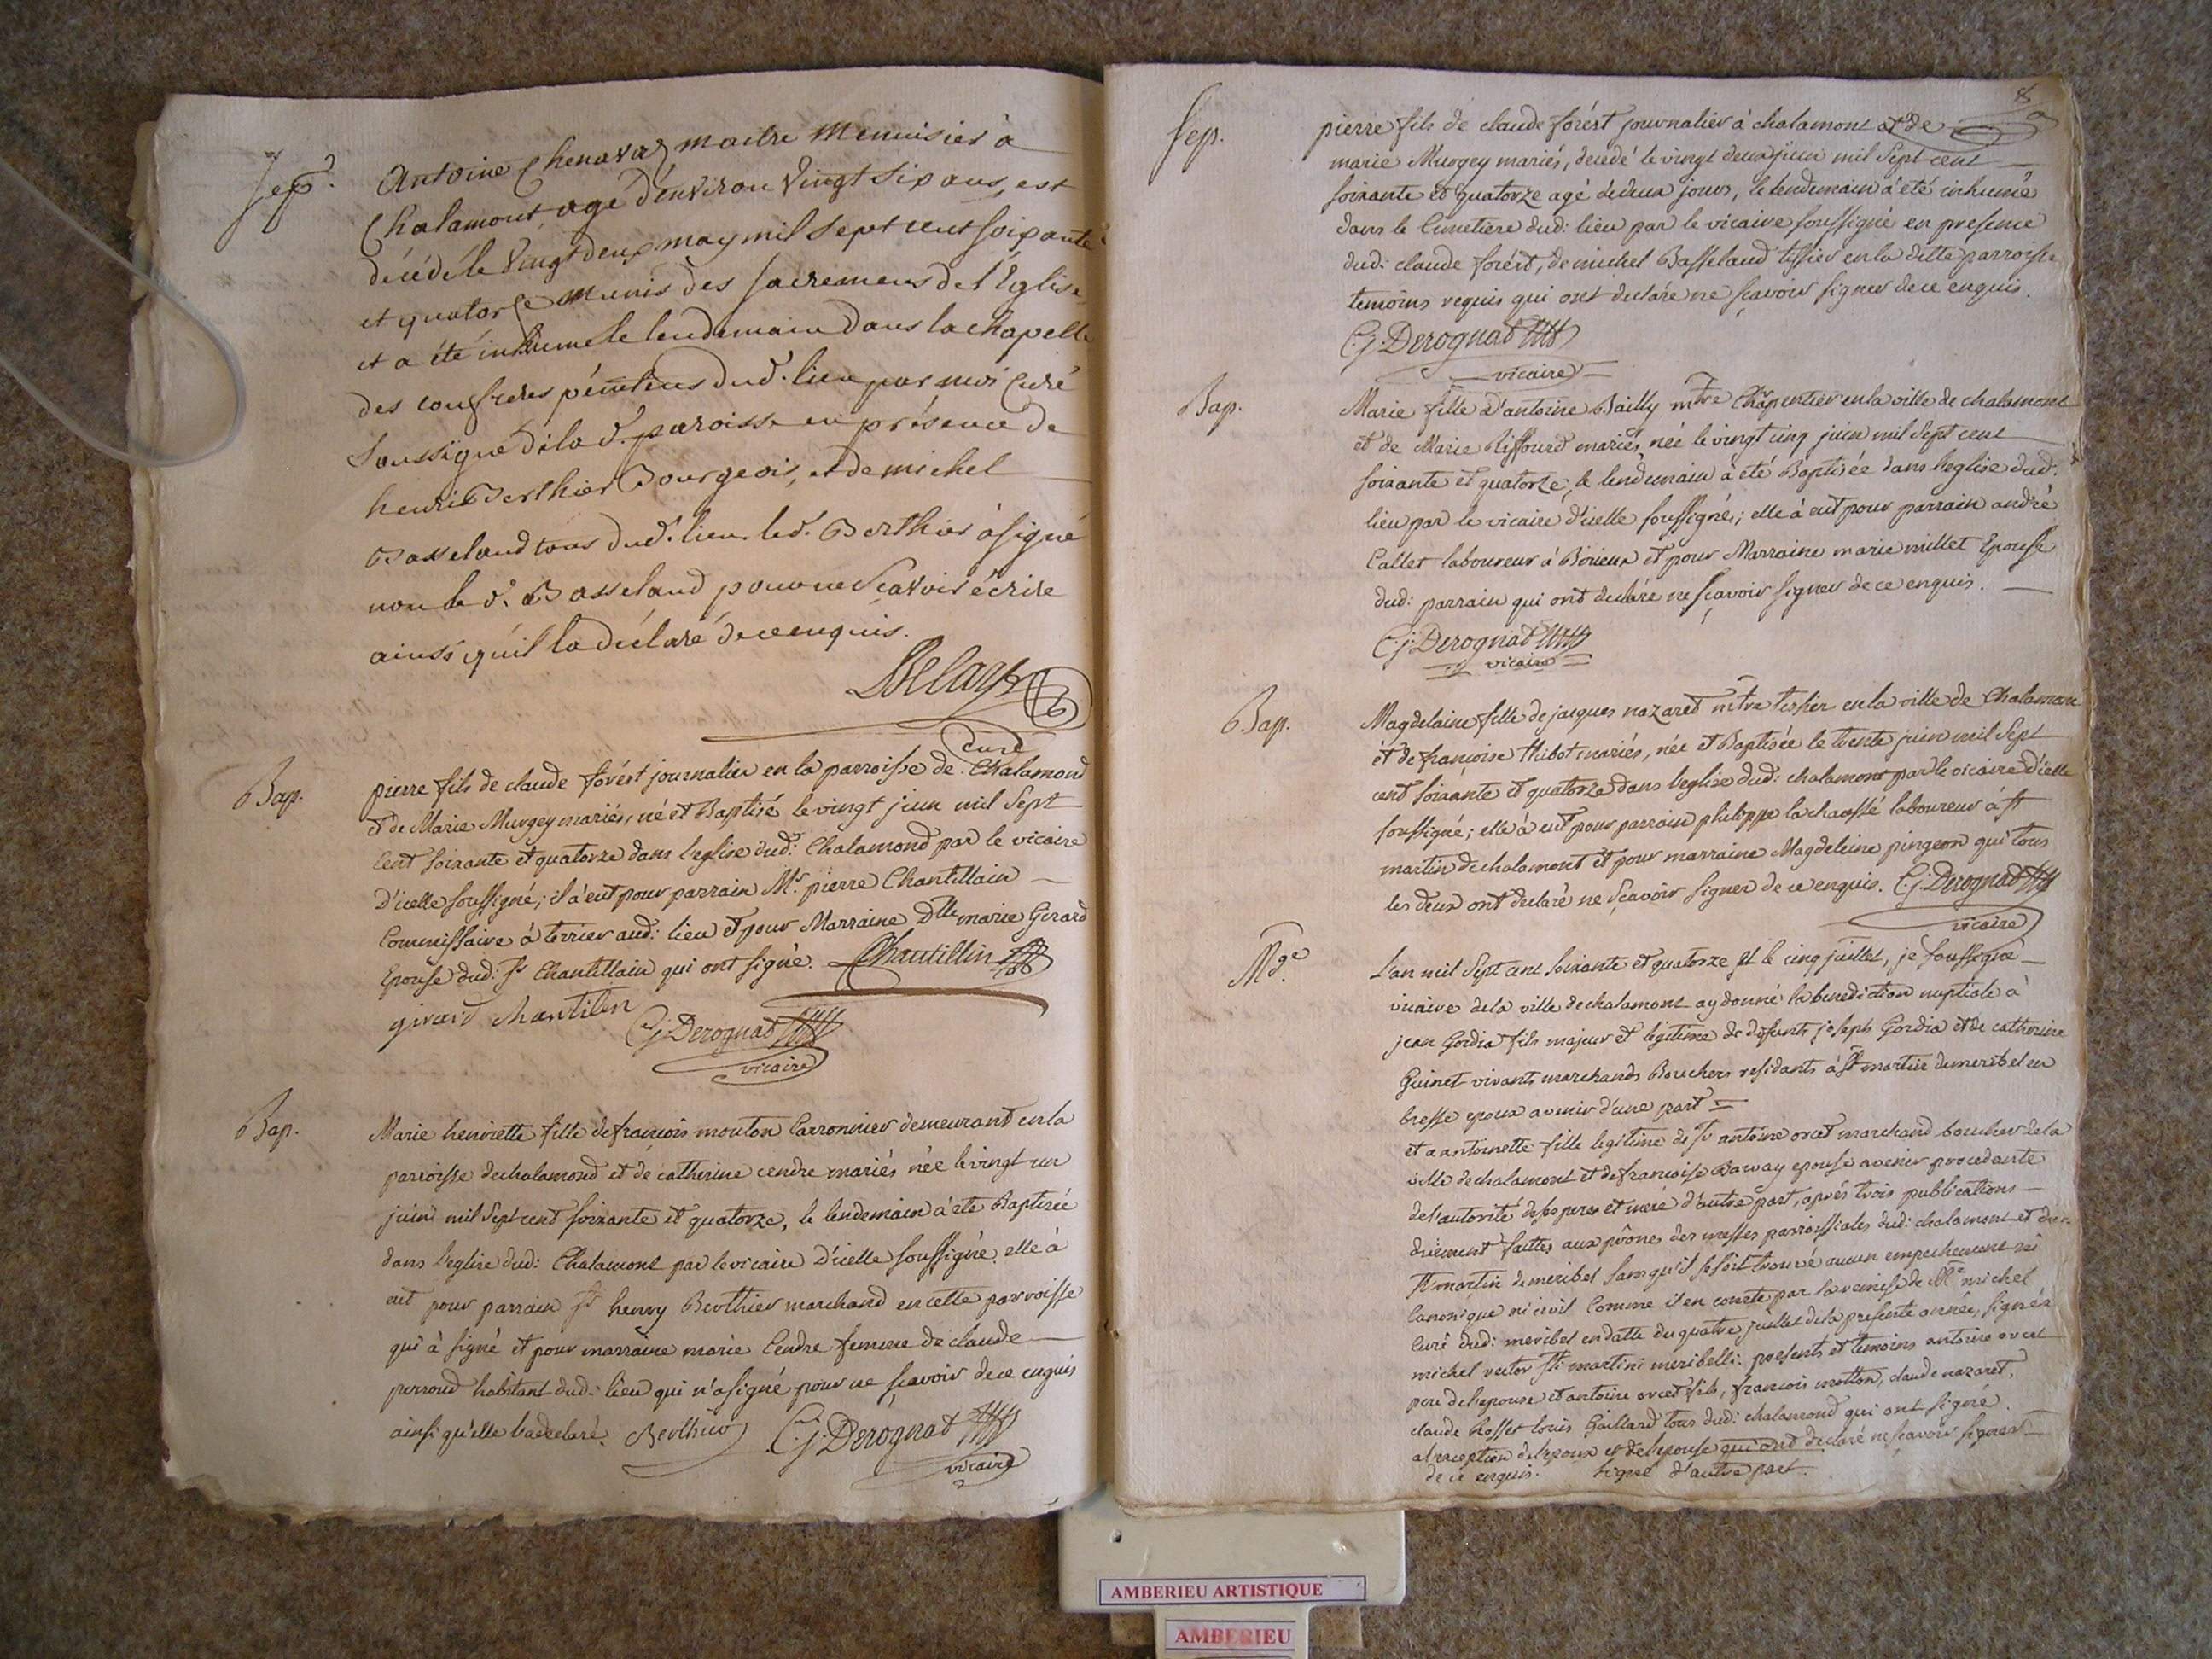 Sep.
Antoine Chenavaz maitre Menuisier à
Chalamont, agé d'environ Vingt six ans, est
décédé le Vingt deux may mil Sept cent soixante
et quatorze munis des Sacremens de l'Église,
et a été inhumé le lendemain dans la chapelle
des confreres pénitens dud. lieu par moi Curé
Soussigné de la d. paroisse en présence de
henri Berthier Bourgeois, et de michel
Basseland tous dud. lieu. led. Berthier à signé
non le d. Basseland pour ne Sçavoir écrire
ainsi qu'il la déclaré de ce enquis.
Delary
curé
Bap.
pierre fils de claude forést journalier en la parroisse de Chalamond
et de Marie Murgey mariés, né et Baptisé le vingt juin mil Sept
Cent soixante et quatorze dans l'eglise dud: Chalamond par le vicaire
D'icelle soussigné; il a eut pour parrain Mr. pierre Chantillain
Commissaire à terrier aud: lieu et pour Marraine Dlle marie Girard
Epouse dud: Sr Chantillain qui ont signé. Chantillin
girard chantilin
C.j. Derognat
vicaire
Bap.
Marie henriette fille de françois mouton Carronnier demeurant en la
parroisse de chalamond et de catherine cendre mariés née le vingt un
juin mil Sept cent soixante et quatorze, le lendemain à été Baptisée
dans l'eglise dud: Chalamont par le vicaire D'icelle soussigné; elle à
eut pour parrain Sr henry Berthier marchand en cette parroisse
qui à signé et pour marraine marie Cendre femme de claude
perroud habitant dud: lieu qui n'a signé pour ne sçavoir de ce enquis
ainsi qu'elle l'a declaré. Berthier C.j. Derognat
vicaire
8
Sep.
pierre fils de claude forést journalier à chalamont et de
marie Murgey mariés, decedé le vingt deux juin mil Sept cent
soixante et quatorze agé de deux jours, le lendemain à été inhumé
dans le Cimetiere dud: lieu par le vicaire soussigné en presence
dud: claude forést, de michel Basseland tissier en la ditte parroisse
temoins requis qui ont declaré ne sçavoir signer de ce enquis.
C.j. Derognat
vicaire
Bap.
Marie fille d'antoine Bailly mtre Charpentier en la ville de chalamont
et de Marie Riffourd mariés, née le vingt cinq juin mil Sept cent
soixante et quatorze, le lendemain à été Baptisée dans l'eglise dud:
lieu par le vicaire d'icelle soussigné; elle à eut pour parrain andré
Callet laboureur à Bérieux et pour Marraine marie millet Epouse
dud: parrain qui ont declaré ne sçavoir signer de ce enquis.
C.j. Derognat
vicaire
Bap.
Magdelaine fille de jacques nazaret mtre tissier en la ville de Chalamont
et de françoise thibot mariés, née et Baptisée le trente juin mil Sept
cent soixante et quatorze dans l'eglise dud: chalamont par le vicaire d'icelle
soussigné; elle à eut pour parrain philippe la chaossé laboureur à St
martin de chalamont et pour marraine Magdeleine pingeon qui tous
les deux ont declaré ne sçavoir signer de ce enquis. C.j. Derognat
vicaire
Mge.
L'an mil Sept cent soixante et quatorze et le cinq juillet, je soussigné
vicaire de la ville de chalamont ay donné la benediction nuptiale à
jean Gordia fils majeur et legitime de defunts joseph Gordia et de catherine
Guinet vivants marchands Bouchers residants à St martin de meribel en
bresse epoux a venir d'une part
et a antoinette fille legitime de Sr antoine orcet marchand boucher de la
ville de chalamont et de françoise Barvay epouse avenir procedante
de l'autorité de ses pere et mere d'autre part, aprés trois publications
duement faittes aux prônes des messes parroissiales dud: chalamont et de
St martin de meribel sans qu'il se soit trouvé aucun empechement ni
Canonique ni civil Comme il en conste par la remise de Me michel
Curé dud: meribel en datte du quatre juillet de la presente année, signée
michel rector Sti martini meribelli. presents et temoins antoine orcet
pere de l'epouse et antoine orcet fils, françois motton, claude nazaret,
claude Rosset louis Gaillard tous dud: chalamond qui ont signé.
a l'exception de l'epoux et de l'epouse qui ont declaré ne sçavoir signer
de ce enquis. signé d'autre part.
AMBERIEU ARTISTIQUE
AMBERIEU